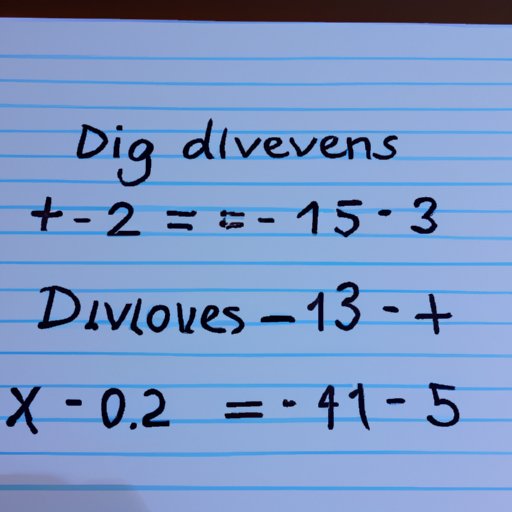 Dig dlvevens
+ - 2 = = - 15 - 3
Divloves - 13 - +
X - 0.2 = - 41 - 5